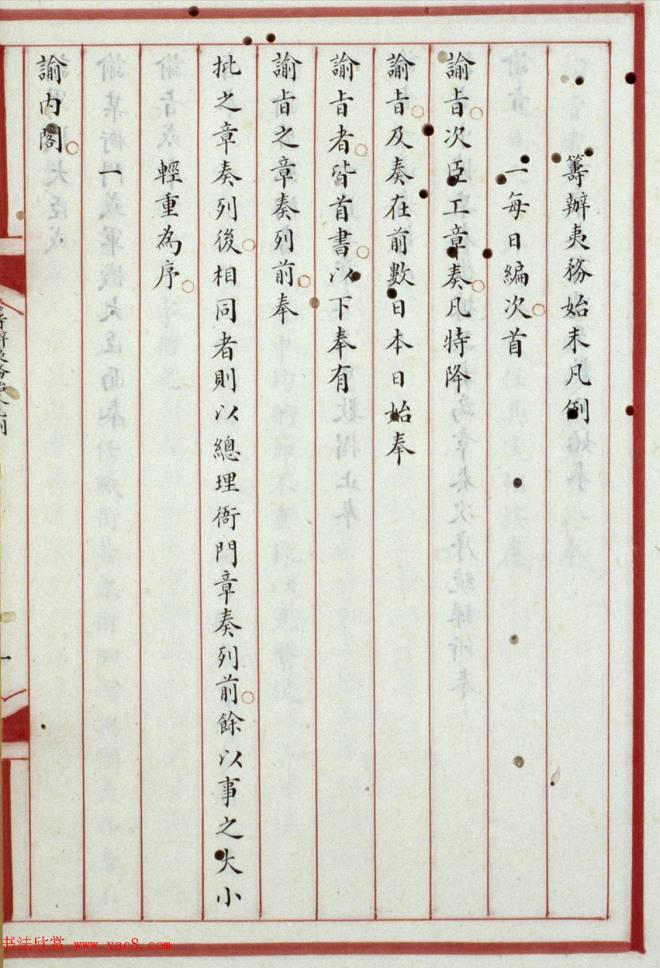 籌辦夷務始末凡例
一每日編次首
諭旨次臣工章奏凡特降
諭旨及奏在前數日本日始奉
諭旨者皆首書以下奉有
諭旨之章奏列前奉
批之章奏列後相同者則以總理衙門章奏列前餘以事之大小
輕重為序
一
諭內閣
书法欣赏 www.yac8.com